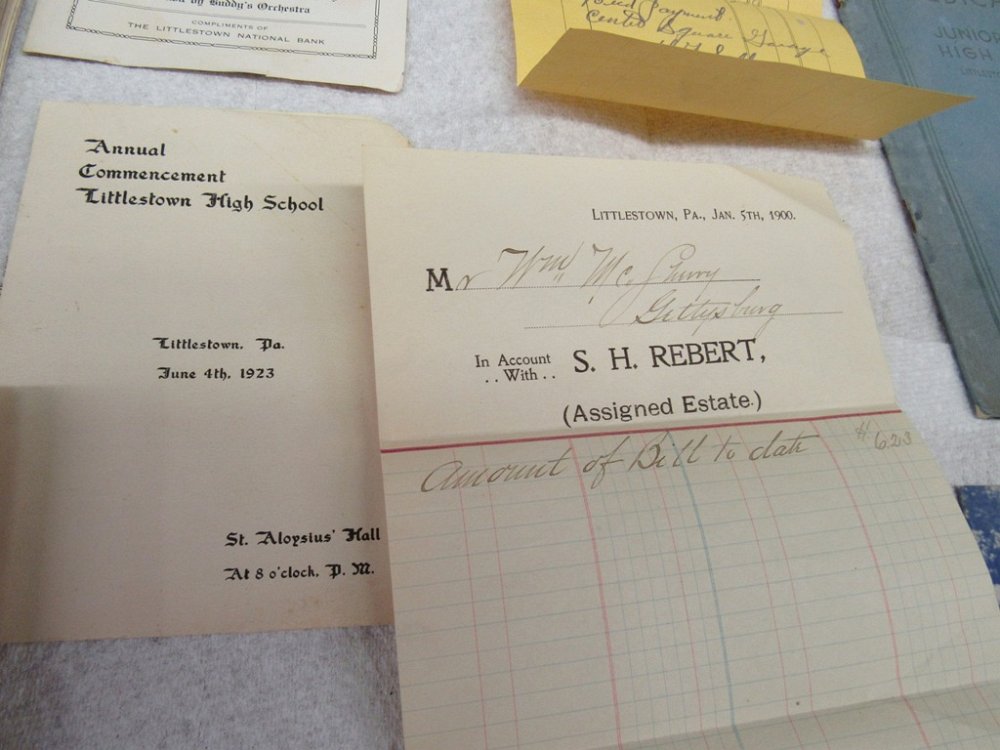 by Buddy's Orchestra
COMPLIMENTS OF
THE LITTLESTOWN NATIONAL BANK
Payment
Center Square Garage
JUNIOR
HIGH
Annual
Commencement
Littlestown High School
Littlestown, Pa.
June 4th, 1923
St. Aloysius' Hall
At 8 o'clock, P. M.
LITTLESTOWN, PA., JAN. 5TH, 1900.
Mr Wm Mc. Sherry
Gettysburg
In Account
.. With ..
S. H. REBERT,
(Assigned Estate.)
Amount of Bill to date 6.23